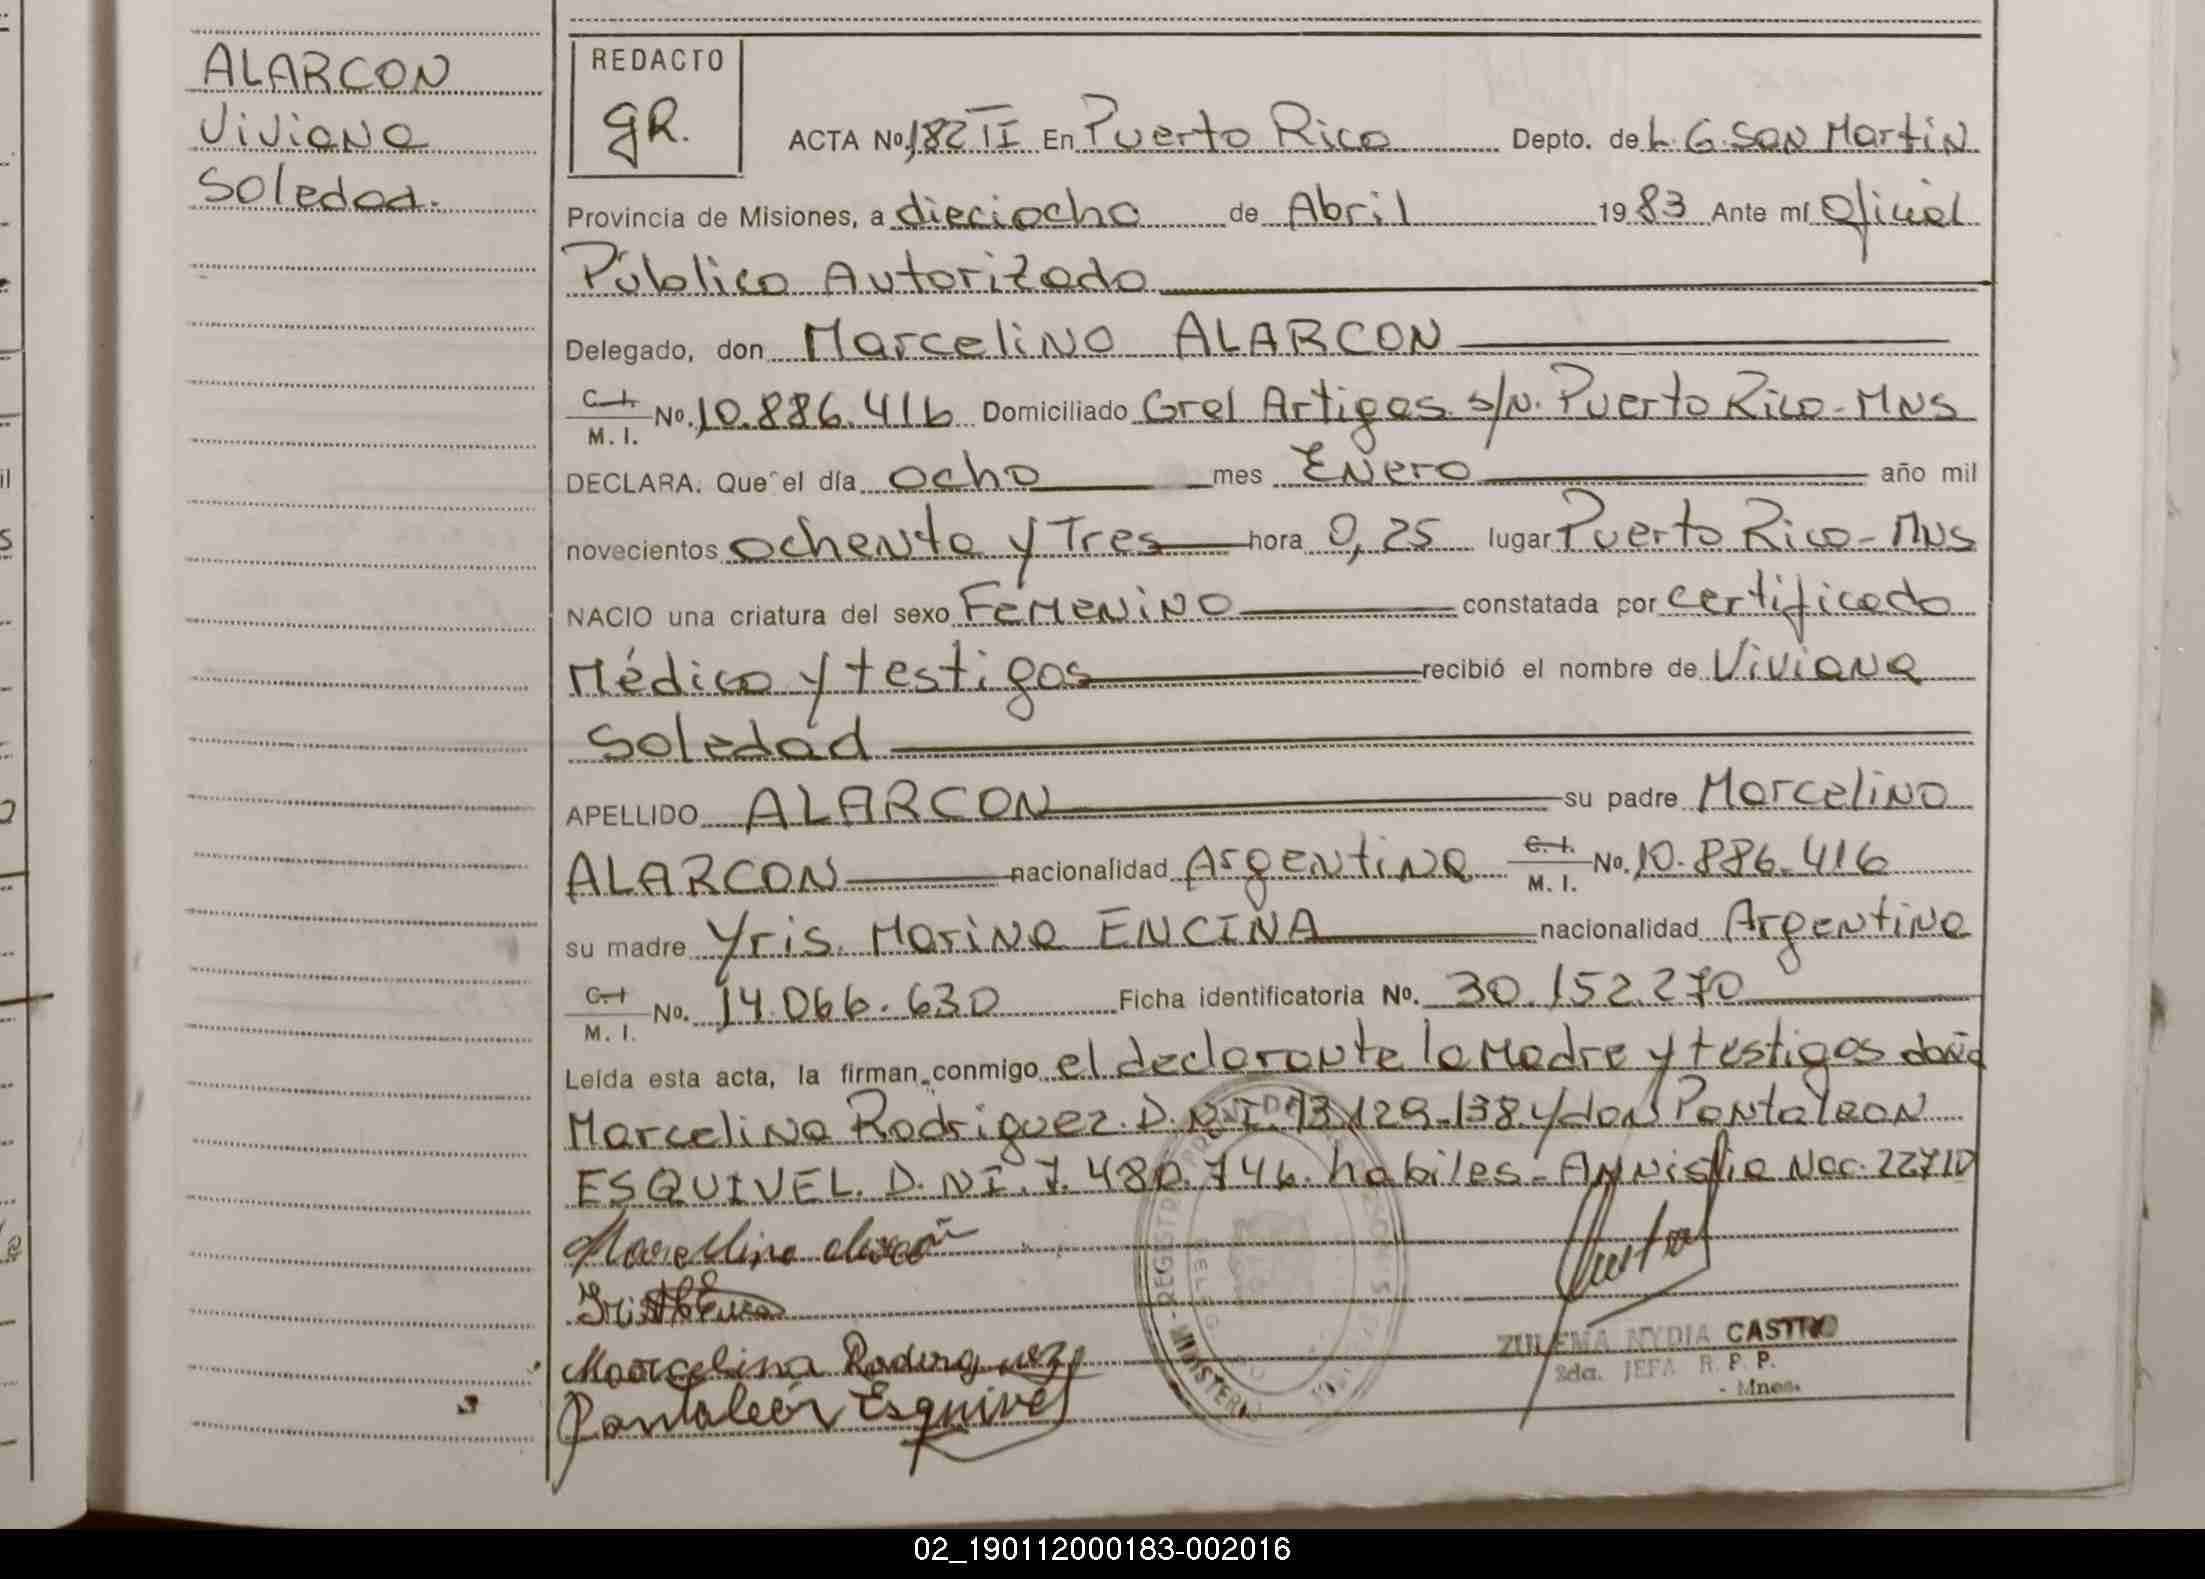 ALARCON
Viviana
Soledad.
REDACTO
gR.
ACTA No. 182 II En Puerto Rico Depto. de L. G. San Martin
Provincia de Misiones, a dieciocho de Abril 1983 Ante mí Oficial
Público Autorizado
Delegado, don Marcelino ALARCON
C. I.
M. I. No. 10.886.416 Domiciliado Gral Artigas s/N. Puerto Rico - MNS
DECLARA. Que el día ocho mes Enero año mil
novecientos ochenta y Tres hora 0,25 lugar Puerto Rico - MNS
NACIO una criatura del sexo Femenino constatada por certificado
Médico y testigos recibió el nombre de Viviana
Soledad
APELLIDO ALARCON su padre Marcelino
ALARCON nacionalidad Argentina C. I.
M. I. No. 10.886.416
su madre Yris Marina ENCINA nacionalidad Argentina
C. I
M. I. No. 14.066.630 Ficha identificatoria No. 30.152.270
Leída esta acta, la firman conmigo el declarante la Madre y testigos doña
Marcelina Rodriguez. D.N.I. 13.129.138. y don Pantaleon
ESQUIVEL. D. NI. 7.480.746. habiles - Amnistia Nac. 22710
Marcelino Alarcón
Marcelina Rodriguez
Pantaleón Esquivel
ZULEMA NYDIA CASTRO
2da. JEFA R. P. P.
- Mnes.
02_190112000183-002016